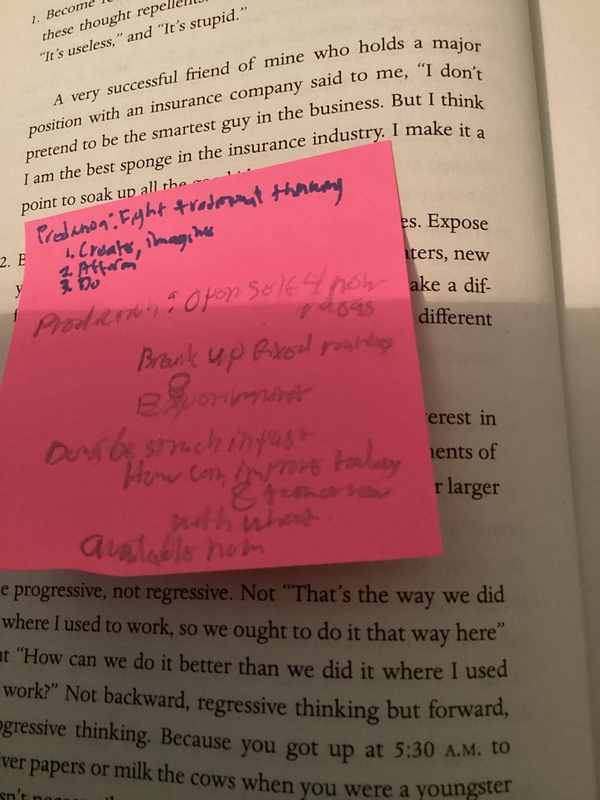 1. Become
these thought repellents.
"It's useless," and "It's stupid."
A very successful friend of mine who holds a major
position with an insurance company said to me, "I don't
pretend to be the smartest guy in the business. But I think
I am the best sponge in the insurance industry. I make it a
point to soak up all the
2. B
es. Expose
ters, new
y
ake a dif-
f
different
Fight traditional thinking
1. Create, imagine
2. Affirm
3. Do
Open self 4 new
ideas
Break up fixed routines
&
Experiment
Don't be stuck in past
How can improve today
& tomorrow
with what
available now
erest in
ents of
r larger
e progressive, not regressive. Not "That's the way we did
where I used to work, so we ought to do it that way here"
t "How can we do it better than we did it where I used
work?" Not backward, regressive thinking but forward,
gressive thinking. Because you got up at 5:30 A.M. to
ver papers or milk the cows when you were a youngster
sn't